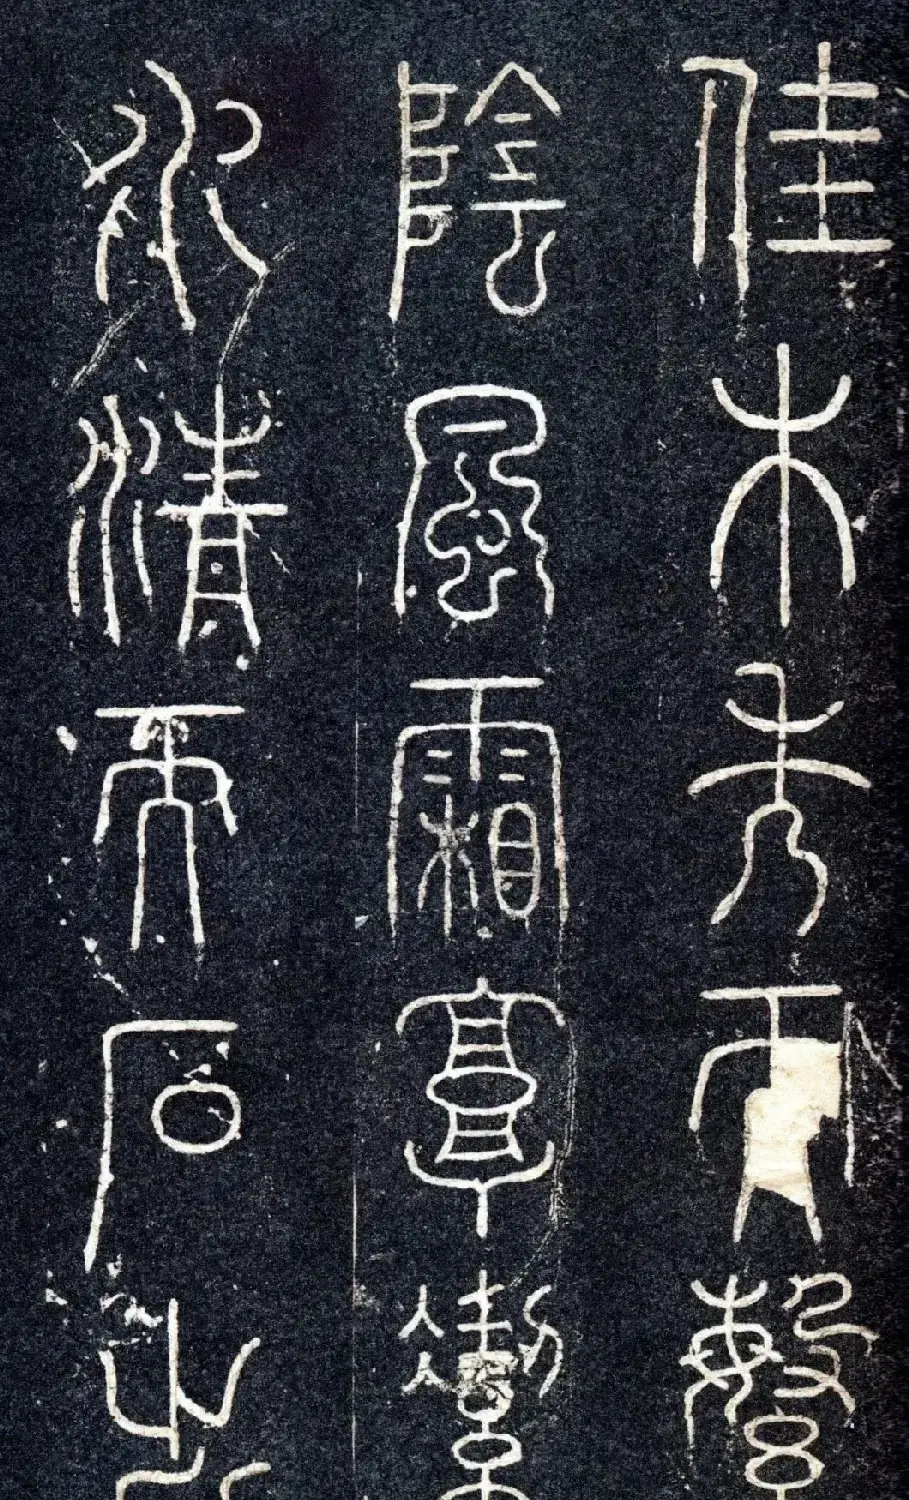 佳木秀而繁
陰風霜高潔
水清而石出